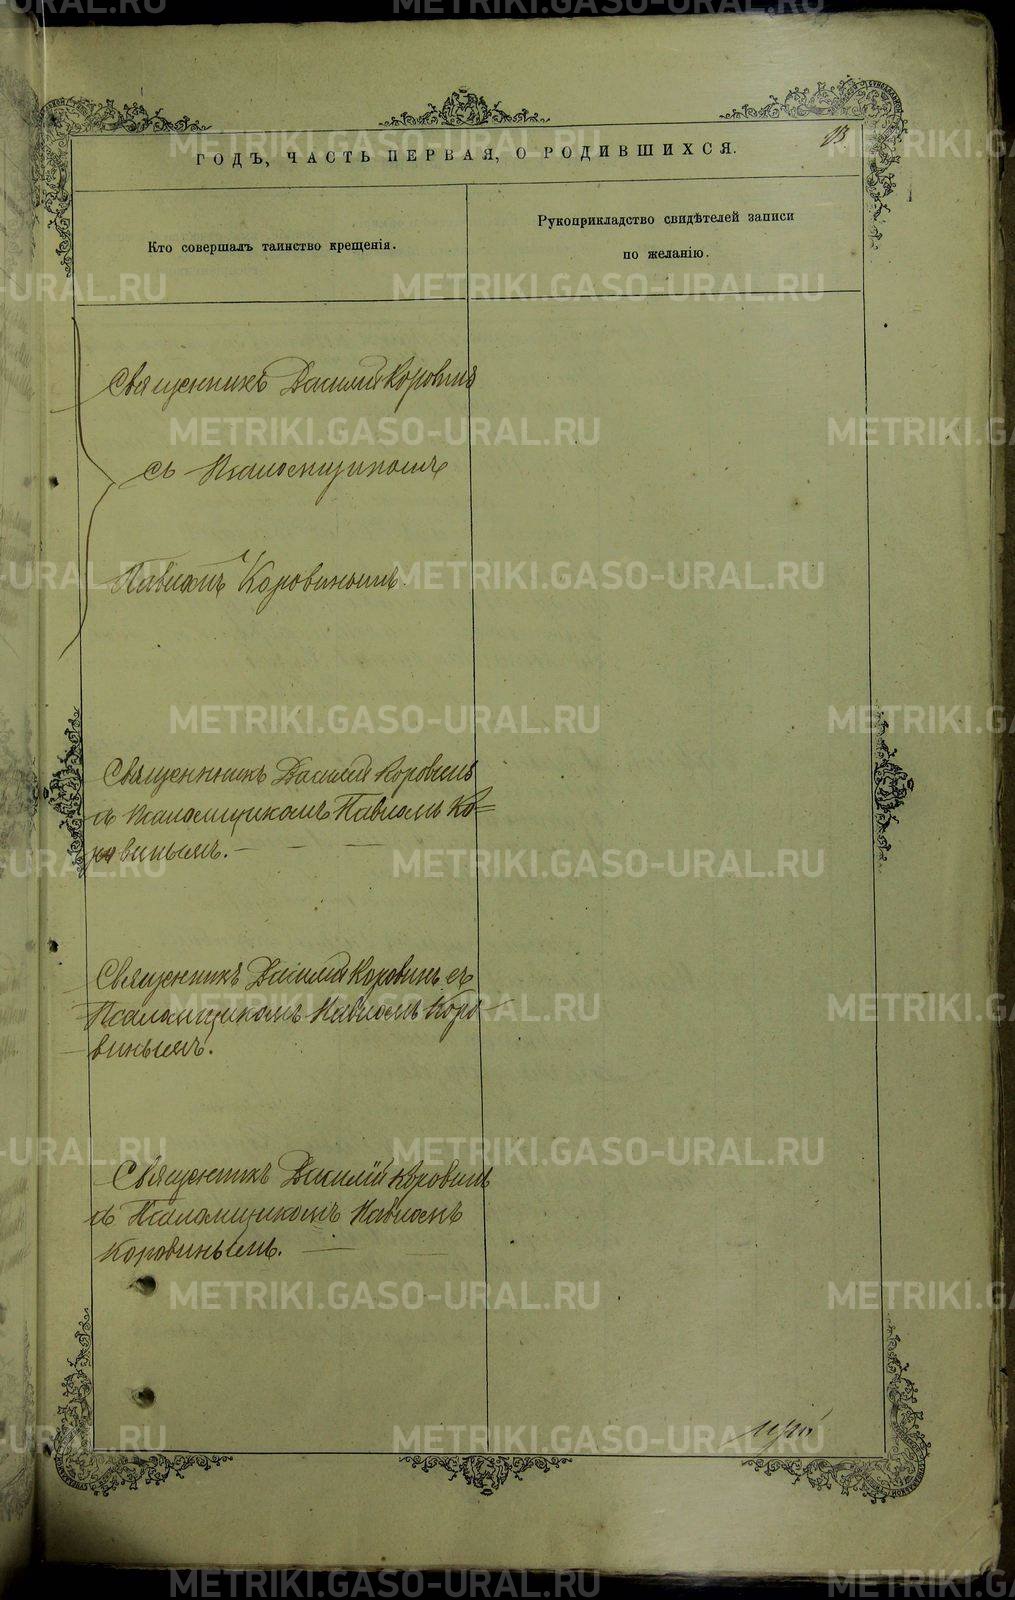 13
ГОДЪ, ЧАСТЬ ПЕРВАЯ, О РОДИВШИХСЯ.
Кто совершалъ таинство крещенія.
Рукоприкладство свидѣтелей записи
по желанію.
Священникъ Василий Коровинъ
съ Псаломщикомъ
Павломъ Коровинымъ.
Священникъ Василий Коровинъ
съ Псаломщикомъ Павломъ Ко=
ровинымъ.
Священникъ Василий Коровинъ съ
Псаломщикомъ Павломъ Коро-
винымъ.
Священникъ Василій Коровинъ
съ Псаломщикомъ Павломъ
Коровинымъ.
METRIKI.GASO-URAL.RU